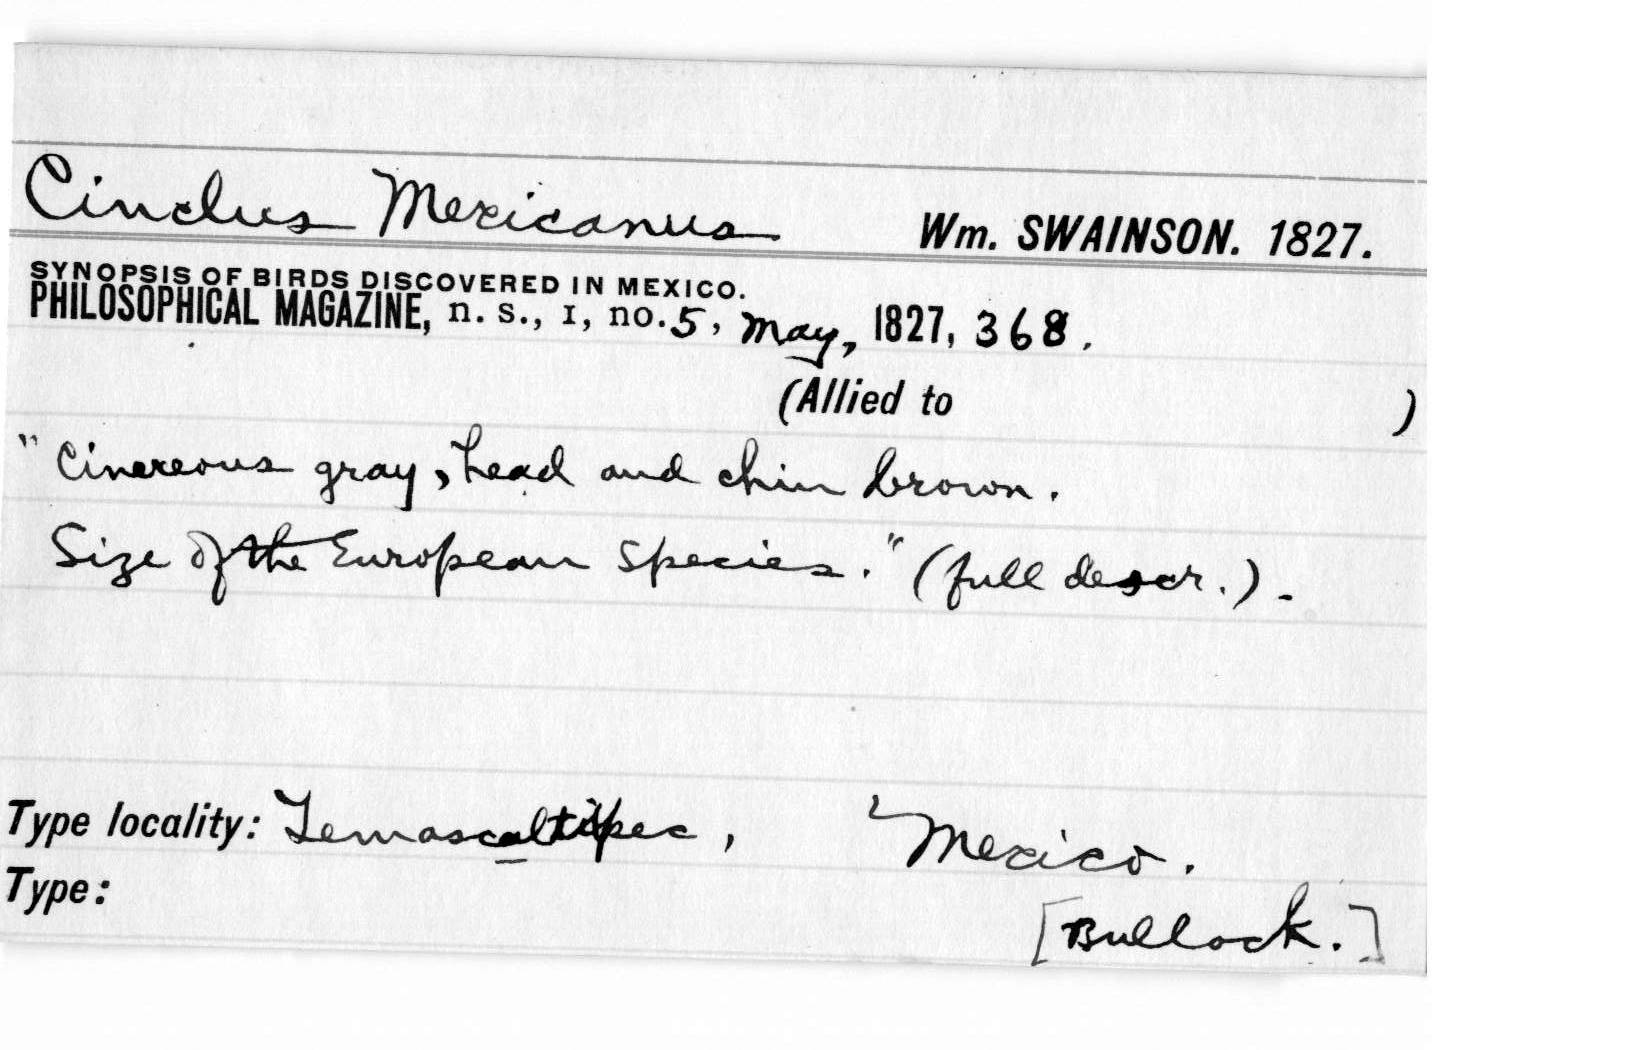 Cinclus Mexicanus Wm. SWAINSON. 1827.
SYNOPSIS OF BIRDS DISCOVERED IN MEXICO.
PHILOSOPHICAL MAGAZINE, n. s., I, no. 5, May, 1827, 368.
(Allied to )
"Cinereous gray, head and chin brown.
Size of the European species." (full descr.).
Type locality: Temascaltipec, Mexico.
Type: [Bullock.]